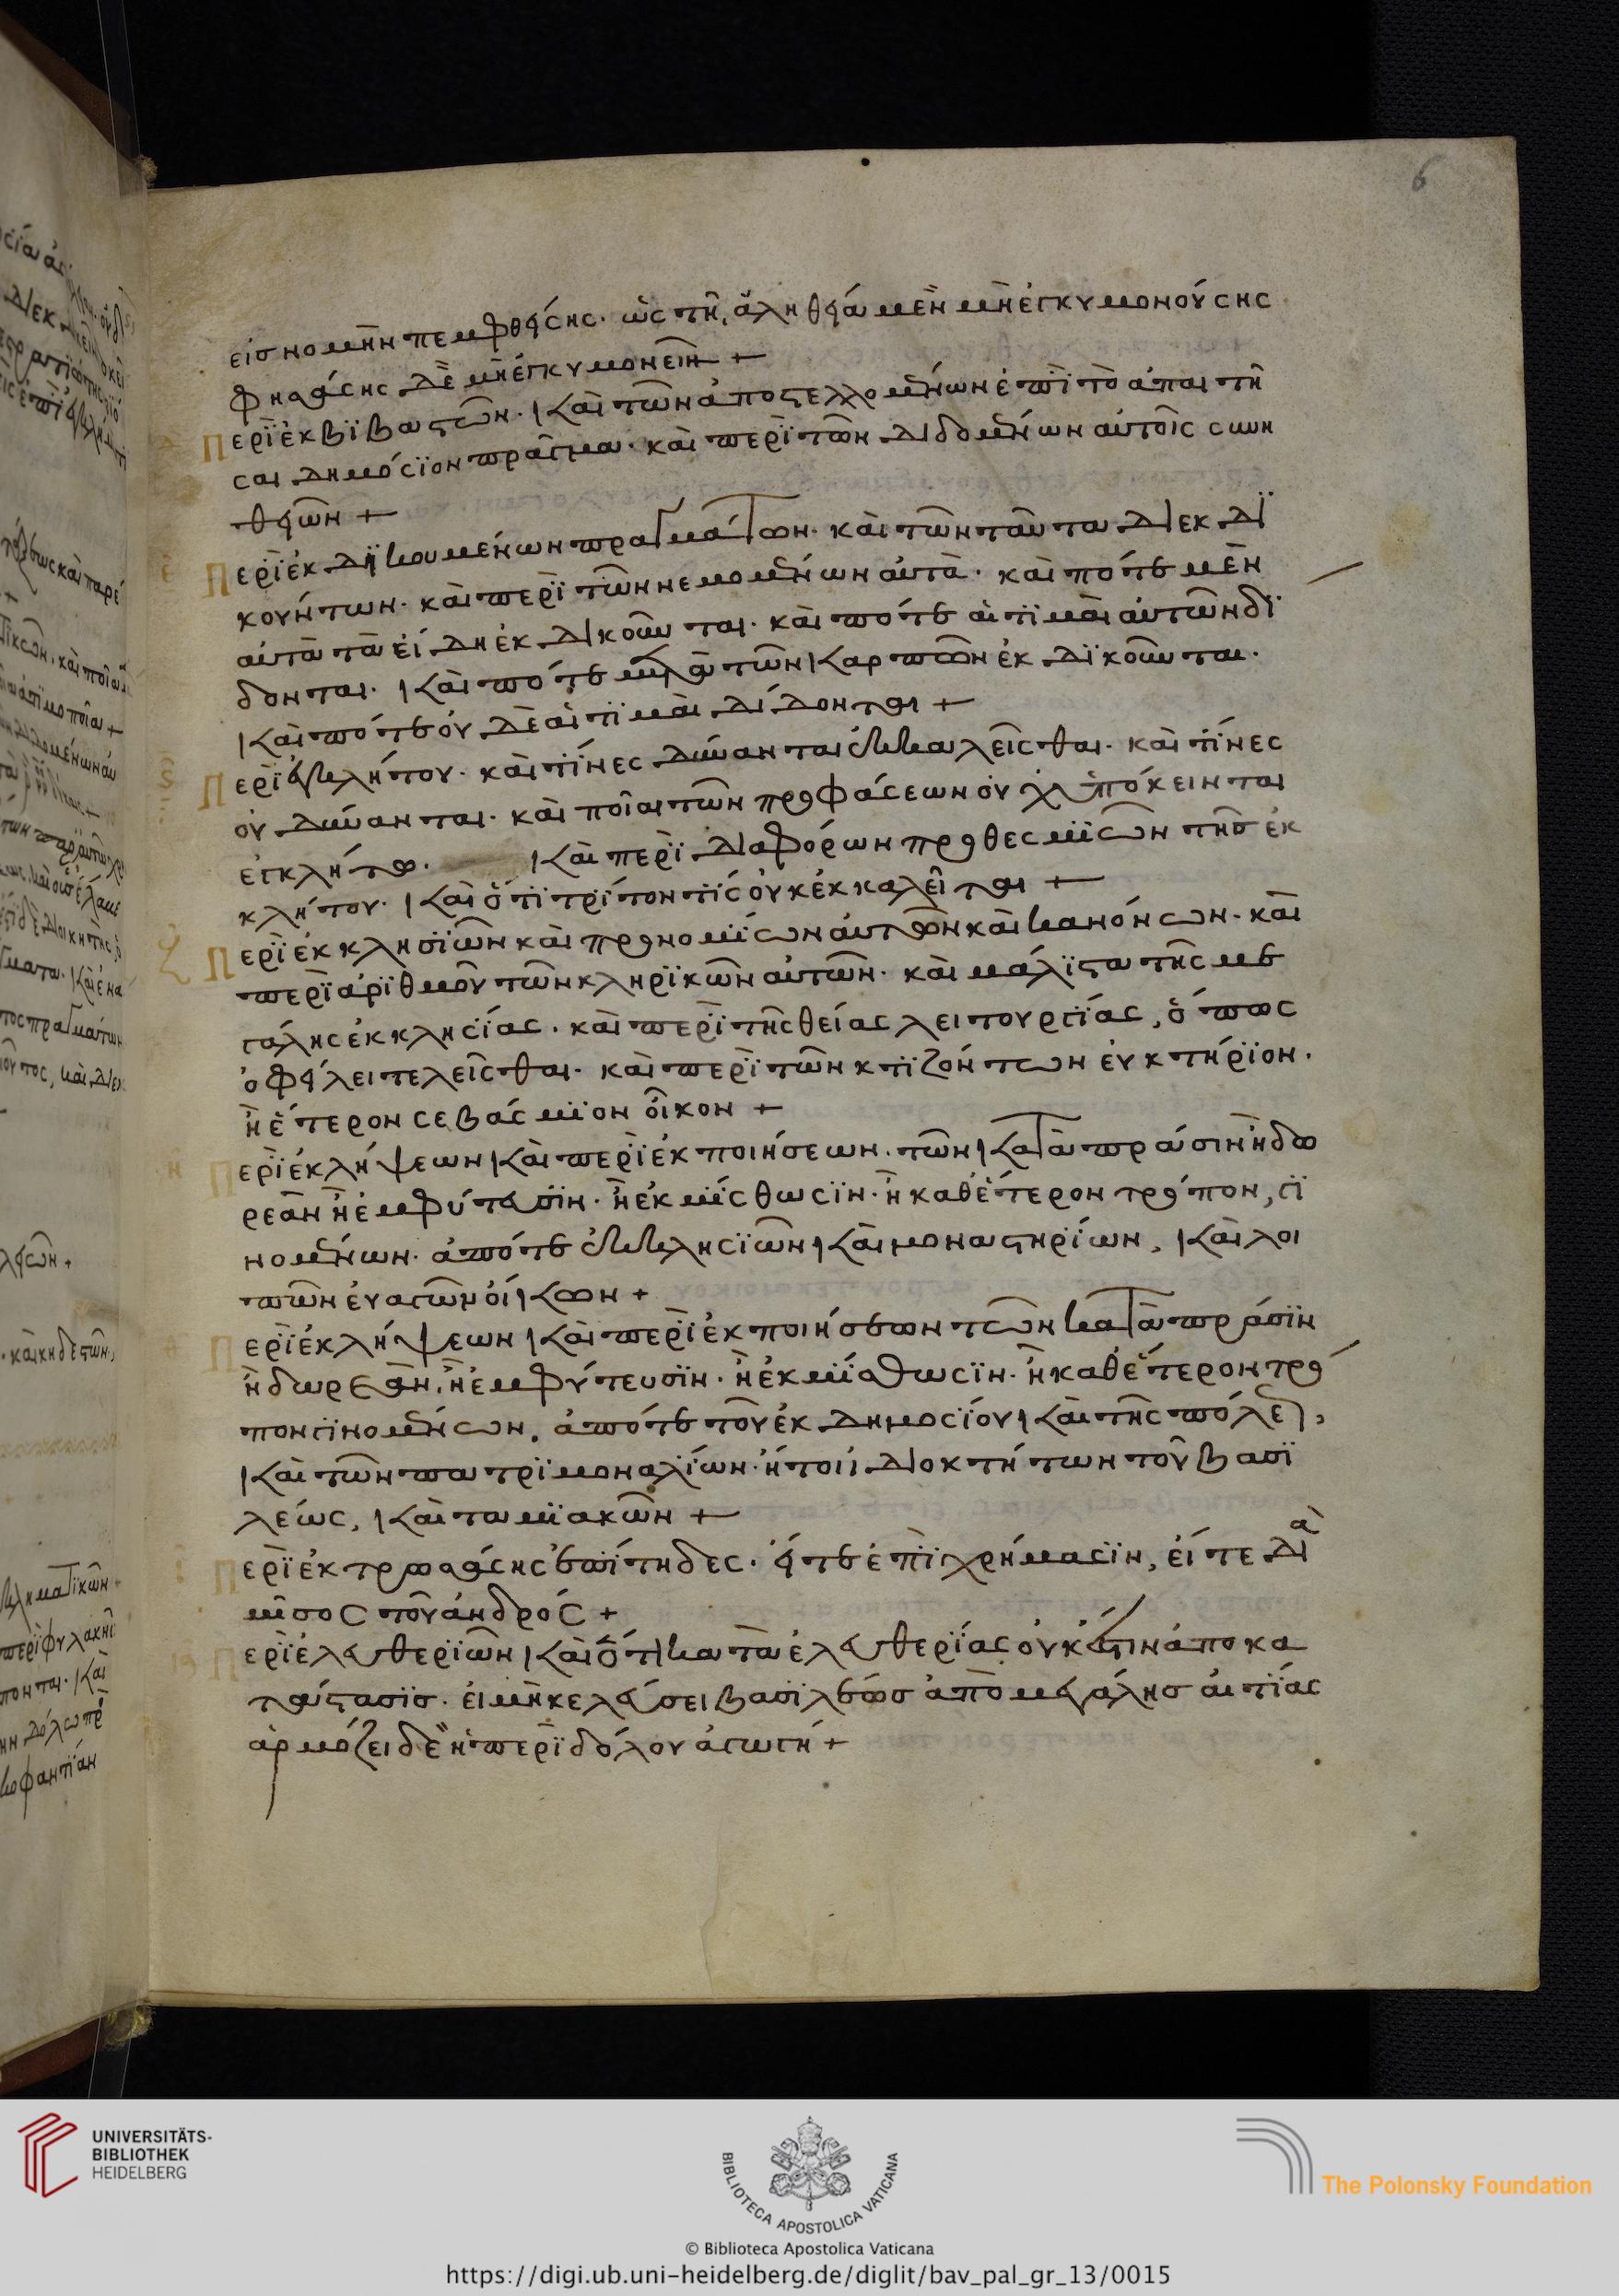 6
εἰς νομὴν πεμφθείσης· ὡς τῇ ἀληθείᾳ μὲν μὴ ἐγκυμονούσης
φησάσης δὲ μὴ ἐγκυμονεῖν +
Περὶ ἐκβιβαστῶν· καὶ τῶν ἀποστελλομένων ἐπὶ τὸ ἀπαιτῆ
σαι δημόσιον πρᾶγμα· καὶ περὶ τῶν διδομένων αὐτοῖς συνη
θειῶν +
Περὶ ἐκδικουμένων πραγμάτων· καὶ τῶν ταῦτα διεκδι
κούντων· καὶ περὶ τῶν νεμομένων αὐτὰ· καὶ πότε μὲν
αὐτὰ τὰ εἴδη ἐκδικοῦνται· καὶ πότε αἱ τιμαὶ αὐτῶν δί
δονται· καὶ πότε μετὰ τῶν καρπῶν ἐκδικοῦνται·
καὶ πότε οὐδὲ αἱ τιμαὶ δίδονται +
Περὶ ἐκκλήτου· καὶ τίνες δύνανται ἐκκαλεῖσθαι· καὶ τίνες
οὐ δύνανται· καὶ ποῖαι τῶν προφάσεων οὐχ ὑπόκεινται
ἐγκλήτῳ· καὶ περὶ διαφόρων προθεσμιῶν τῆς ἐκ
κλήτου· καὶ ὅτι τρίτον τίς οὐκ ἐκκαλεῖται +
Περὶ ἐκκλησιῶν καὶ προνομίων αὐτῶν καὶ κανόνων· καὶ
περὶ ἀριθμοῦ τῶν κληρικῶν αὐτῶν· καὶ μάλιστα τῆς με
γάλης ἐκκλησίας· καὶ περὶ τῆς θείας λειτουργίας, ὅπως
ὀφείλει τελεῖσθαι· καὶ περὶ τῶν κτιζόντων εὐκτήριον·
ἢ ἕτερον σεβάσμιον οἶκον +
Περὶ ἐκλήψεων καὶ περὶ ἐκποιήσεων· τῶν κατὰ πράσιν ἢ δω
ρεὰν ἢ ἐμφύτευσιν· ἢ ἐκμίσθωσιν· ἢ καθ' ἕτερον τρόπον, γι
νομένων· ἀπό τε ἐκκλησιῶν καὶ μοναστηρίων, καὶ λοι
πῶν εὐαγῶν οἴκων +
Περὶ ἐκλήψεων καὶ περὶ ἐκποιήσεων τῶν κατὰ πράσιν
ἢ δωρεὰν, ἢ ἐμφύτευσιν· ἢ ἐκμίσθωσιν· ἢ καθ' ἕτερον τρό
πον γινομένων, ἀπό τε τοῦ ἐκ δημοσίου καὶ τῆς πόλε,
καὶ τῶν πατριμοναλίων· ἤτοι ἰδιοκτήτων τοῦ βασι
λέως, καὶ ταμιακῶν +
Περὶ ἐκτρωσάσης ἐπίτηδες· εἴτε ἐπὶ χρήμασιν, εἴτε διὰ
μῖσος τοῦ ἀνδρός +
Περὶ ἐλευθεριῶν καὶ ὅτι κατὰ ἐλευθερίας οὐκ ἔστιν ἀποκα
τάστασις· εἰ μὴ κελεύσει βασιλέως ἀπὸ μεγάλης αἰτίας
ἁρμόζει δὲ ἡ περὶ δόλου ἀγωγή +
UNIVERSITÄTS-
BIBLIOTHEK
HEIDELBERG
BIBLIOTECA APOSTOLICA VATICANA
The Polonsky Foundation
© Biblioteca Apostolica Vaticana
https://digi.ub.uni-heidelberg.de/diglit/bav_pal_gr_13/0015